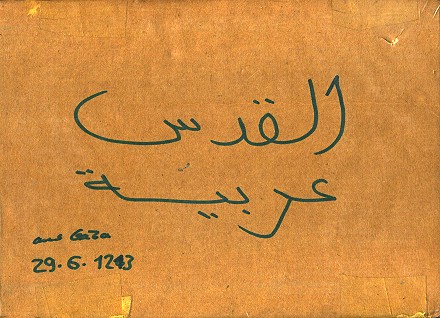 القدس
عربية
aus Gaza
29.6.1243